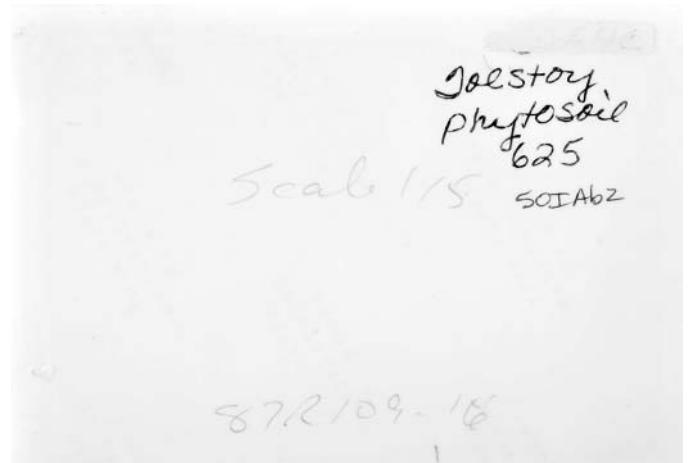 Joe Story
Phytosoil
625
501Ab2
Scale 1/5
87R109-16